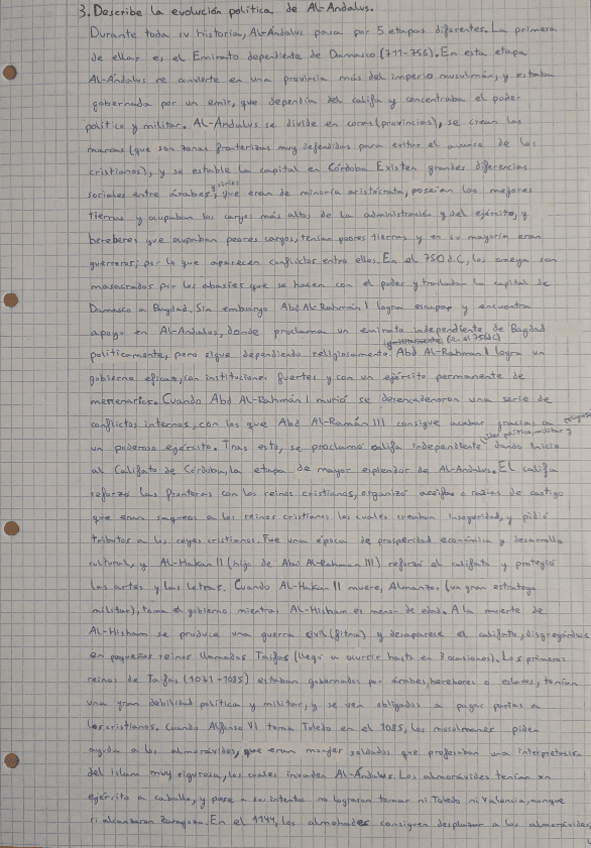 3. Describe la evolución política de Al-Andalus.
Durante toda su historia, Al-Andalus pasa por 5 etapas diferentes. La primera
de ellas es el Emirato dependiente de Damasco (711-756). En esta etapa
Al-Andalus se convierte en una provincia más del imperio musulmán, y estaba
gobernada por un emir, que dependía del califa y concentraba el poder
político y militar. Al-Andalus se divide en coras (provincias), se crean las
marcas (que son zonas fronterizas muy defendidas para evitar el avance de los
cristianos), y se estable la capital en Córdoba. Existen grandes diferencias
sociales entre árabes, que eran de minoría aristócrata, poseían las mejores
tierras y ocupaban los cargos más altos de la administración y del ejército, y
bereberes que ocupaban peores cargos, tenían peores tierras y en su mayoría eran
guerreros; por lo que aparecen conflictos entre ellos. En el 750 d.C, los omeya son
masacrados por los abasíes que se hacen con el poder y trasladan la capital de
Damasco a Bagdad. Sin embargo Abd Al-Rahmán I logra escapar y encuentra
apoyo en Al-Andalus, donde proclama un emirato independiente de Bagdad
políticamente, pero sigue dependiendo religiosamente. Abd Al-Rahman I logra un
gobierno eficaz, con instituciones fuertes y con un ejército permanente de
mercenarios. Cuando Abd Al-Rahmán I murió se desencadenaron una serie de
conflictos internos, con los que Abd Al-Ramán III consigue acabar gracias a
un poderoso ejército. Tras esto, se proclamó califa independiente dando inicio
al Califato de Córdoba, la etapa de mayor esplendor de Al-Andalus. El califa
reforzó las fronteras con los reinos cristianos, organizó aceifas o razias de castigo
que eran saqueos a los reinos cristianos los cuales creaban inseguridad, y pidió
tributos a los reyes cristianos. Fue una época de prosperidad económica y desarrollo
cultural, y Al-Hakan II (hijo de Abd Al-Rahman III) reforzó el califato y protegió
las artes y las letras. Cuando Al-Hakan II muere, Almanzor (un gran estratega
militar), toma el gobierno mientras Al-Hisham es menor de edad. A la muerte de
Al-Hisham se produce una guerra civil (fitna) y desaparece el califato, disgregándose
en pequeños reinos llamados Taifas (llegó a ocurrir hasta en 3 ocasiones). Los primeros
reinos de Taifas (1031-1085) estaban gobernados por árabes, bereberes o eslavos, tenían
una gran debilidad política y militar, y se ven obligados a pagar parias a
los cristianos. Cuando Alfonso VI toma Toledo en el 1085, los musulmanes piden
ayuda a los almorávides, que eran monjes soldados que profesaban una interpretación
del islam muy rigurosa, los cuales invaden Al-Ándalus. Los almorávides tenían un
ejército a caballo, y pese a su intento no lograron tomar ni Toledo ni Valencia, aunque
si alcanzaron Zaragoza. En el 1144, los almohades consiguen desplazar a los almorávides,